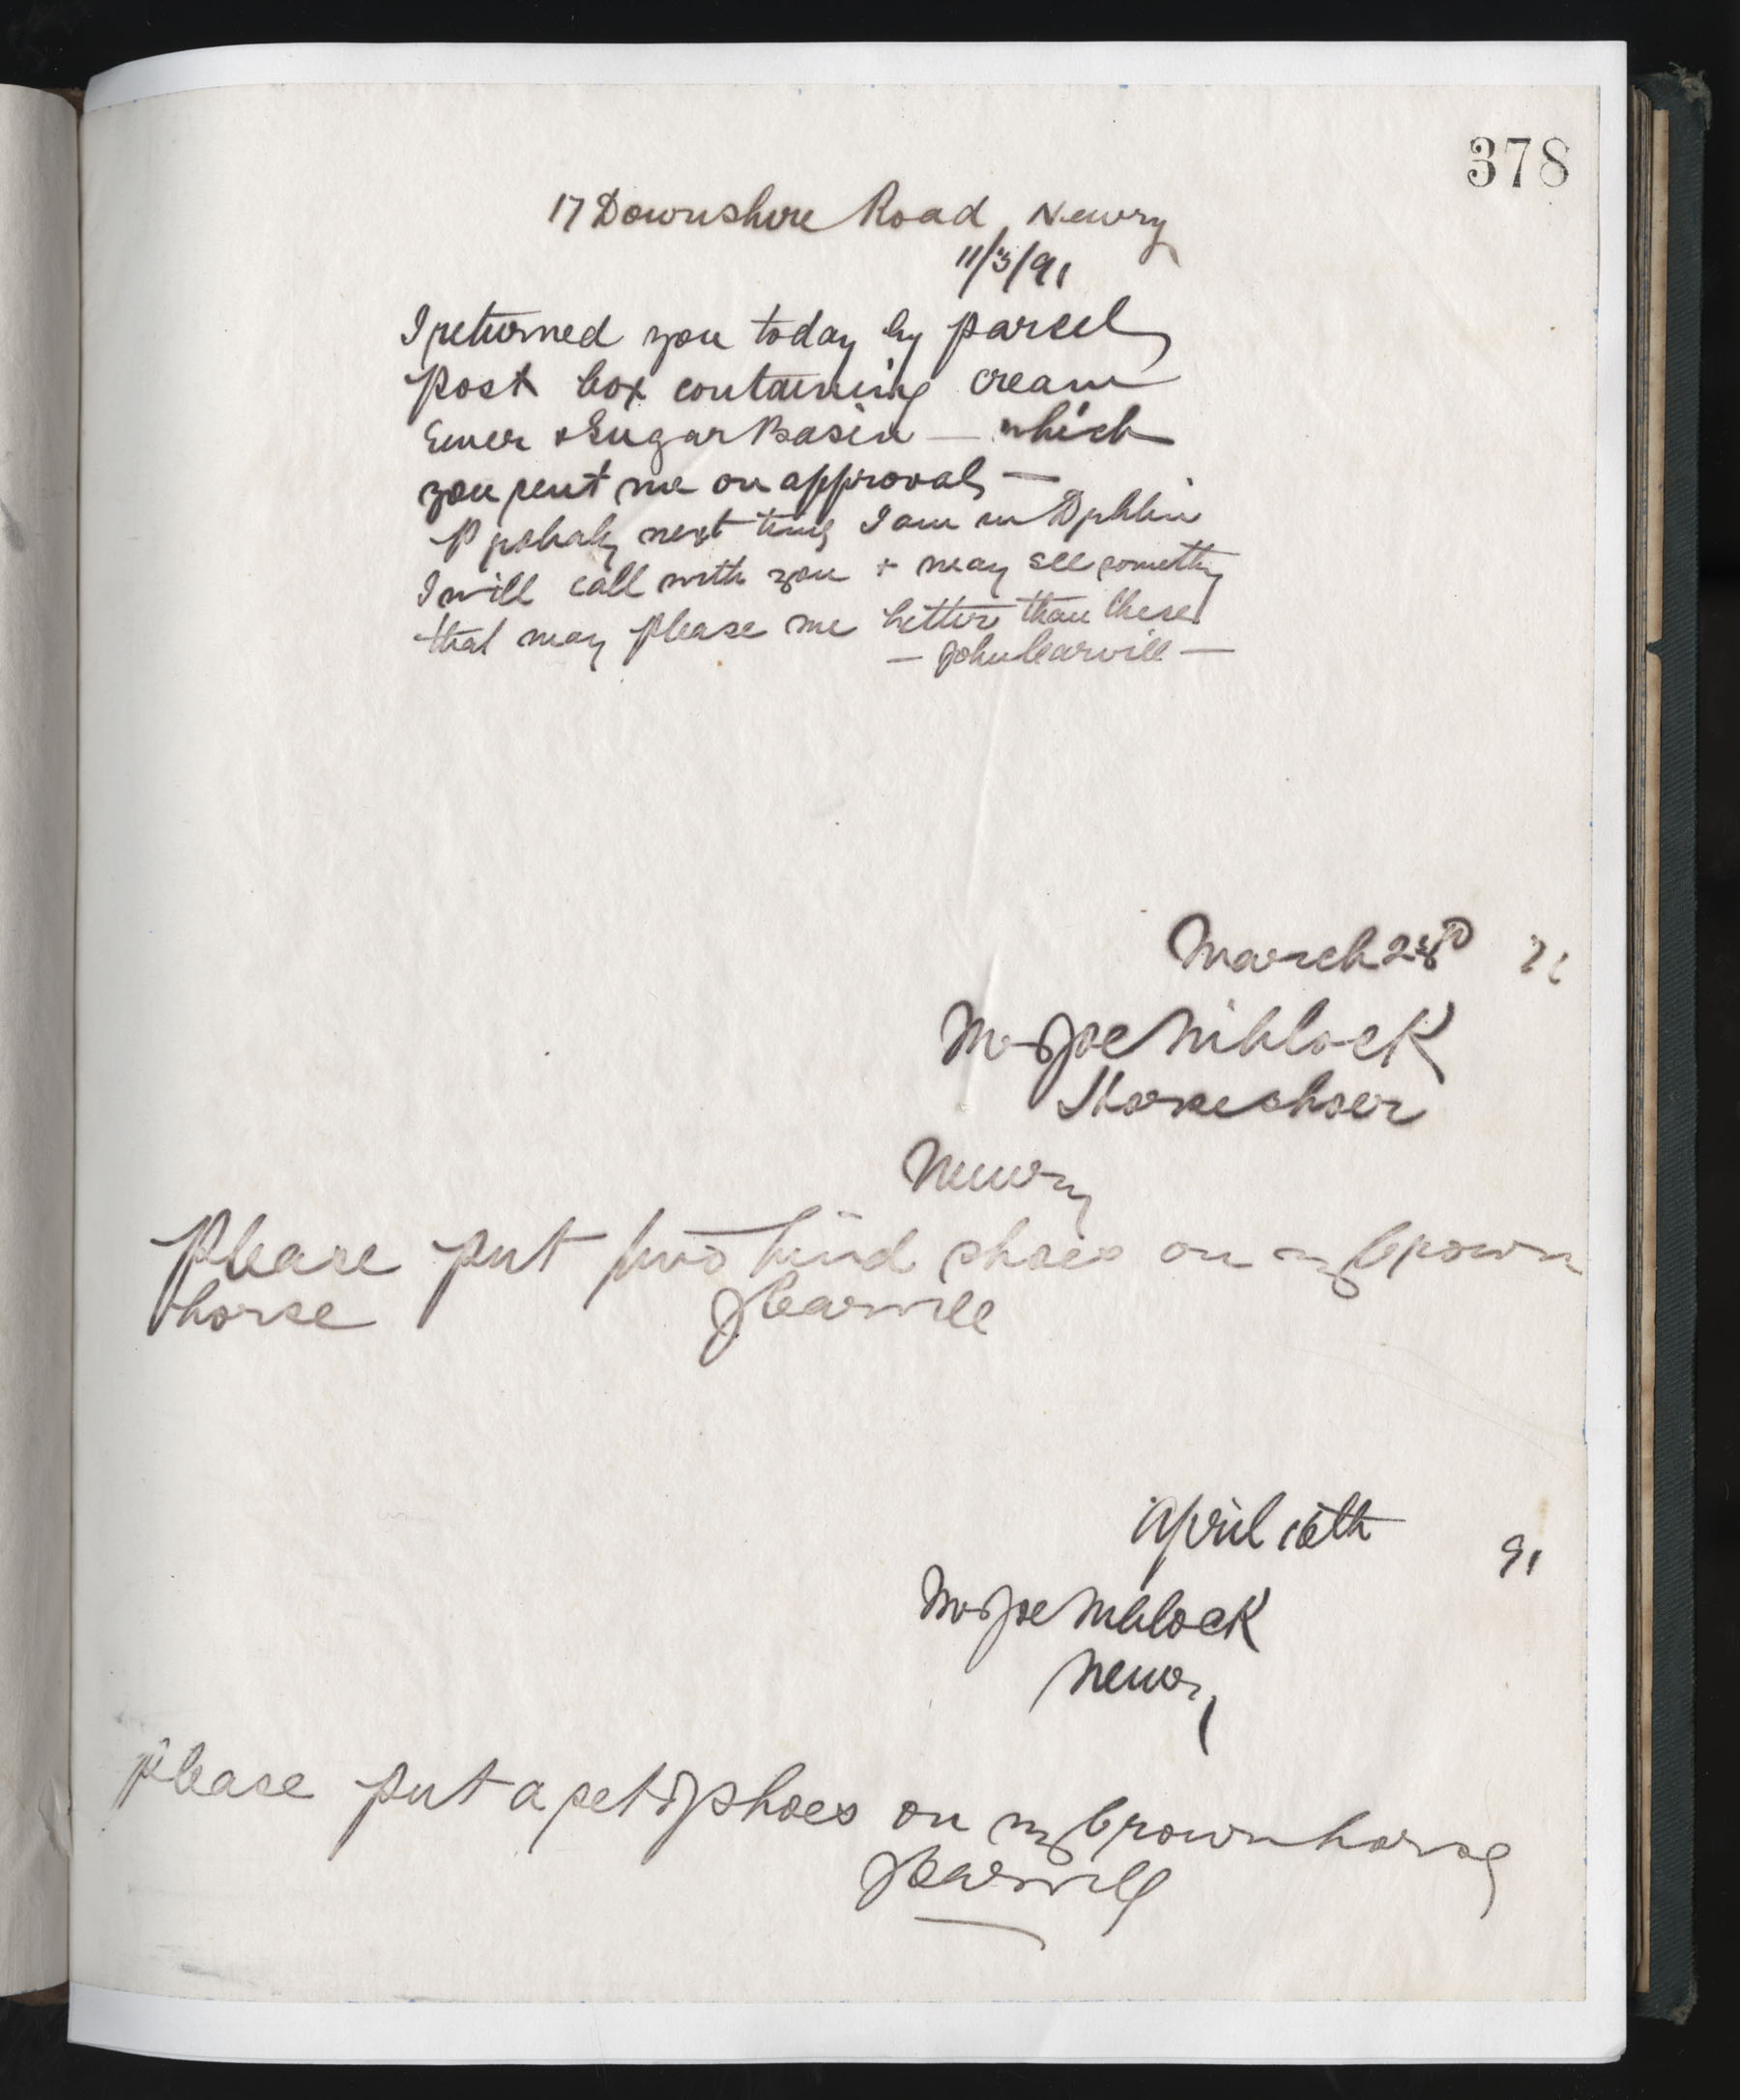 378
17 Downshire Road, Newry
11/3/91
I returned you today by parcel
Post box containing cream
Ewer & Sugar Basin — which
you sent me on approval —
P probaly next time I am in Dublin
I will call with you + may see something
that may please me better than these
— John Carvill —
March 23rd 91
Mr Joe Niblock
Horse shoer
Newry
Please put two hind shoes on my brown
horse JCarvill
April 15th 91
Mr Joe Niblock
Newry
Please put a set of shoes on my brown horse
JCarvill